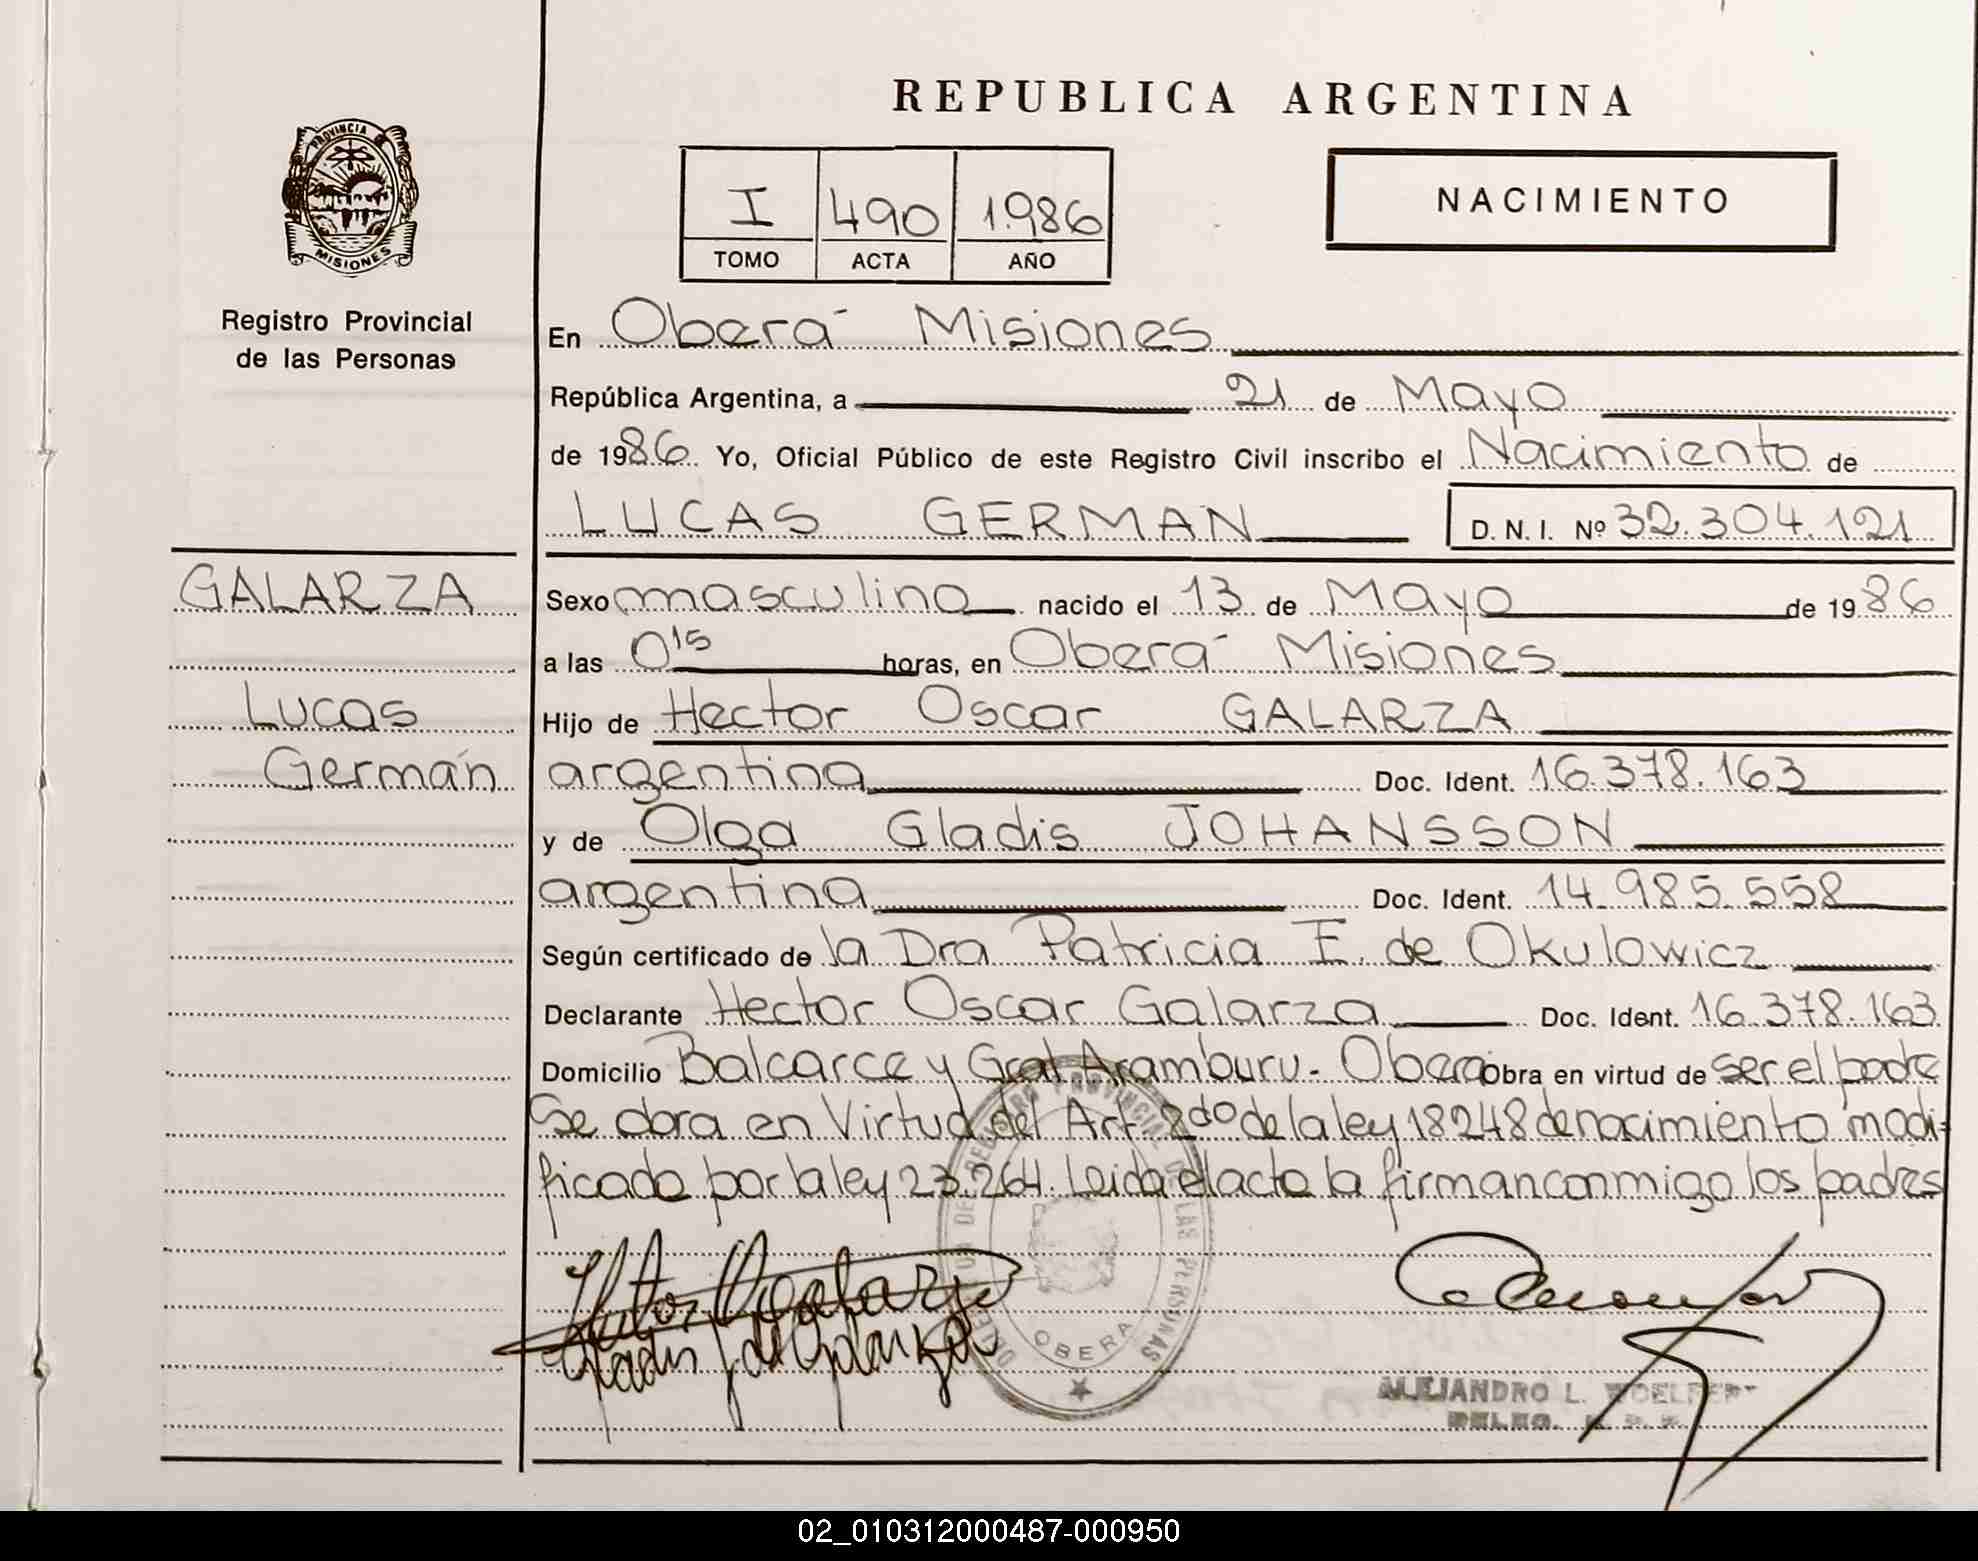 REPUBLICA ARGENTINA
PROVINCIA DE
MISIONES
Registro Provincial
de las Personas
I 490 1.986
TOMO ACTA AÑO
NACIMIENTO
En Oberá Misiones
República Argentina, a 21 de Mayo
de 1986. Yo, Oficial Público de este Registro Civil inscribo el Nacimiento de
LUCAS GERMAN D. N. I. Nº 32.304.121
GALARZA
Lucas
Germán
Sexo masculino nacido el 13 de Mayo de 1986
a las 0 15 horas, en Oberá Misiones
Hijo de Hector Oscar GALARZA
argentina Doc. Ident. 16.378.163
y de Olga Gladis JOHANSSON
argentina Doc. Ident. 14.985.558
Según certificado de la Dra Patricia E. de Okulowicz
Declarante Hector Oscar Galarza Doc. Ident. 16.378.163
Domicilio Balcarce y Gral Aramburu - Obera Obra en virtud de ser el padre
Se obra en Virtud del Art. 2do de la ley 18248 de nacimiento modi-
ficado por la ley 23.264. Leida el acta la firman conmigo los padres
DEL REGISTRO PROVINCIAL DE LAS PERSONAS
OBERA
ALEJANDRO L.
02_010312000487-000950